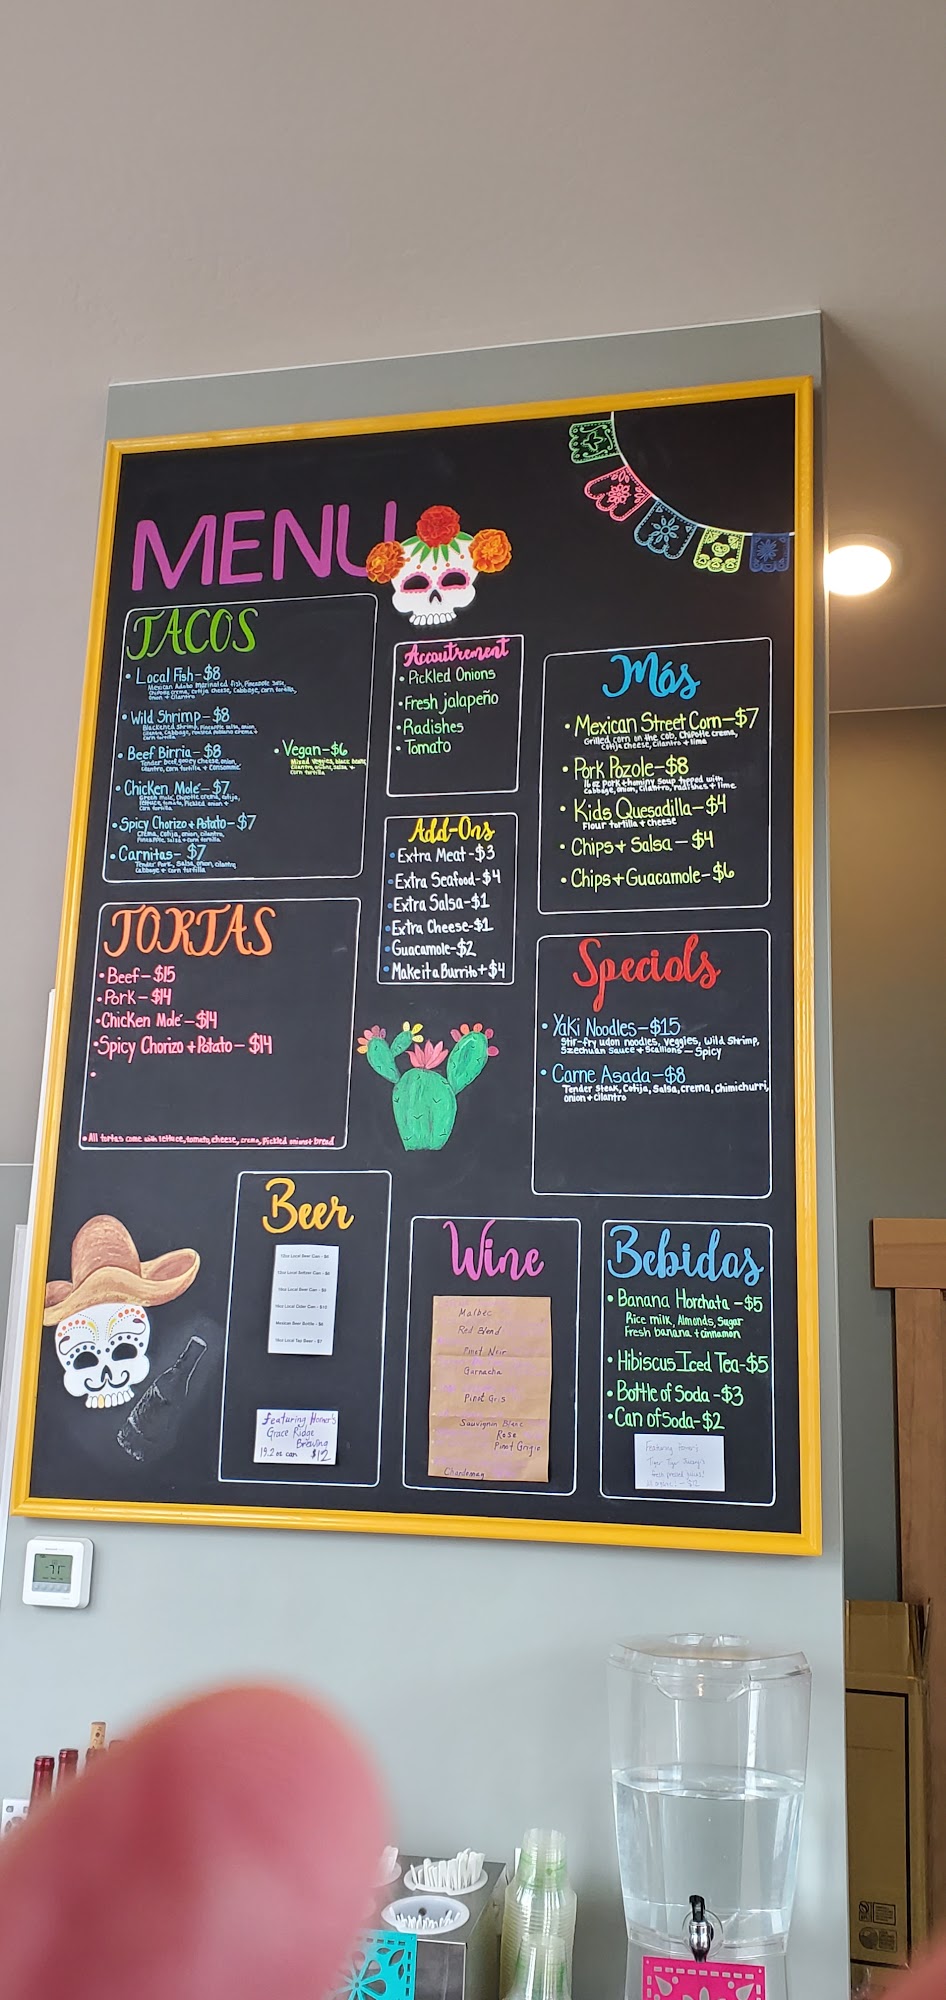 MENU
TACOS
• Local Fish - $8
Mexican Adobo marinated fish, Pineapple salsa,
Chipotle crema, Cotija cheese, Cabbage, corn tortilla,
onion + Cilantro
• Wild Shrimp - $8
Blackened shrimp, Pineapple salsa, onion,
cilantro, Cabbage, roasted Poblano crema +
corn tortilla
• Beef Birria - $8
Tender beef, gooey cheese, onion,
cilantro, corn tortilla + Consommé
• Chicken Mole - $7
Green mole, Chipotle crema, cotija,
lettuce, tomato, Pickled onion +
Corn tortilla
• Spicy Chorizo + Potato - $7
Crema, Cotija, onion, cilantro,
Pineapple, Salsa + corn tortilla
• Carnitas - $7
Tender Pork, Salsa, onion, cilantro,
Cabbage + corn tortilla
• Vegan - $6
Mixed Veggies, black beans,
Cilantro, onions, salsa +
corn tortilla
Accoutrement
• Pickled Onions
• Fresh jalapeño
• Radishes
• Tomato
Add-Ons
• Extra Meat - $3
• Extra Seafood - $4
• Extra Salsa - $1
• Extra Cheese - $1
• Guacamole - $2
• Make it a Burrito + $4
Más
• Mexican Street Corn - $7
Grilled corn on the cob, Chipotle crema,
Cotija cheese, Cilantro + lime
• Pork Pozole - $8
16 oz Pork + hominy Soup topped with
cabbage, onion, cilantro, radishes + lime
• Kids Quesadilla - $4
Flour tortilla + cheese
• Chips + Salsa - $4
• Chips + Guacamole - $6
TORTAS
• Beef - $15
• Pork - $14
• Chicken Mole - $14
• Spicy Chorizo + Potato - $14
•
• All tortas come with lettuce, tomato, cheese, crema, Pickled onions + bread
Specials
• Yaki Noodles - $15
Stir-fry udon noodles, Veggies, Wild Shrimp,
Szechuan Sauce + Scallions - Spicy
• Carne Asada - $8
Tender Steak, Cotija, Salsa, crema, Chimichurri,
onion + cilantro
Beer
12oz Local Beer Can - $6
12oz Local Seltzer Can - $6
16oz Local Beer Can -
16oz Local Cider Can - $10
Mexican Beer Bottle - $6
16oz Local Tap Beer - $7
Featuring Homer's
Grace Ridge
Brewing
19.2 oz can $12
Wine
Malbec
Red Blend
Pinot Noir
Garnacha
Pinot Gris
Sauvignon Blanc
Rose
Pinot Grigio
Chardonnay
Bebidas
• Banana Horchata - $5
Rice milk, Almonds, Sugar
Fresh banana + cinnamon
• Hibiscus Iced Tea - $5
• Bottle of Soda - $3
• Can of Soda - $2
Featuring Homer's
Tiger Tiger
fresh pressed juices!